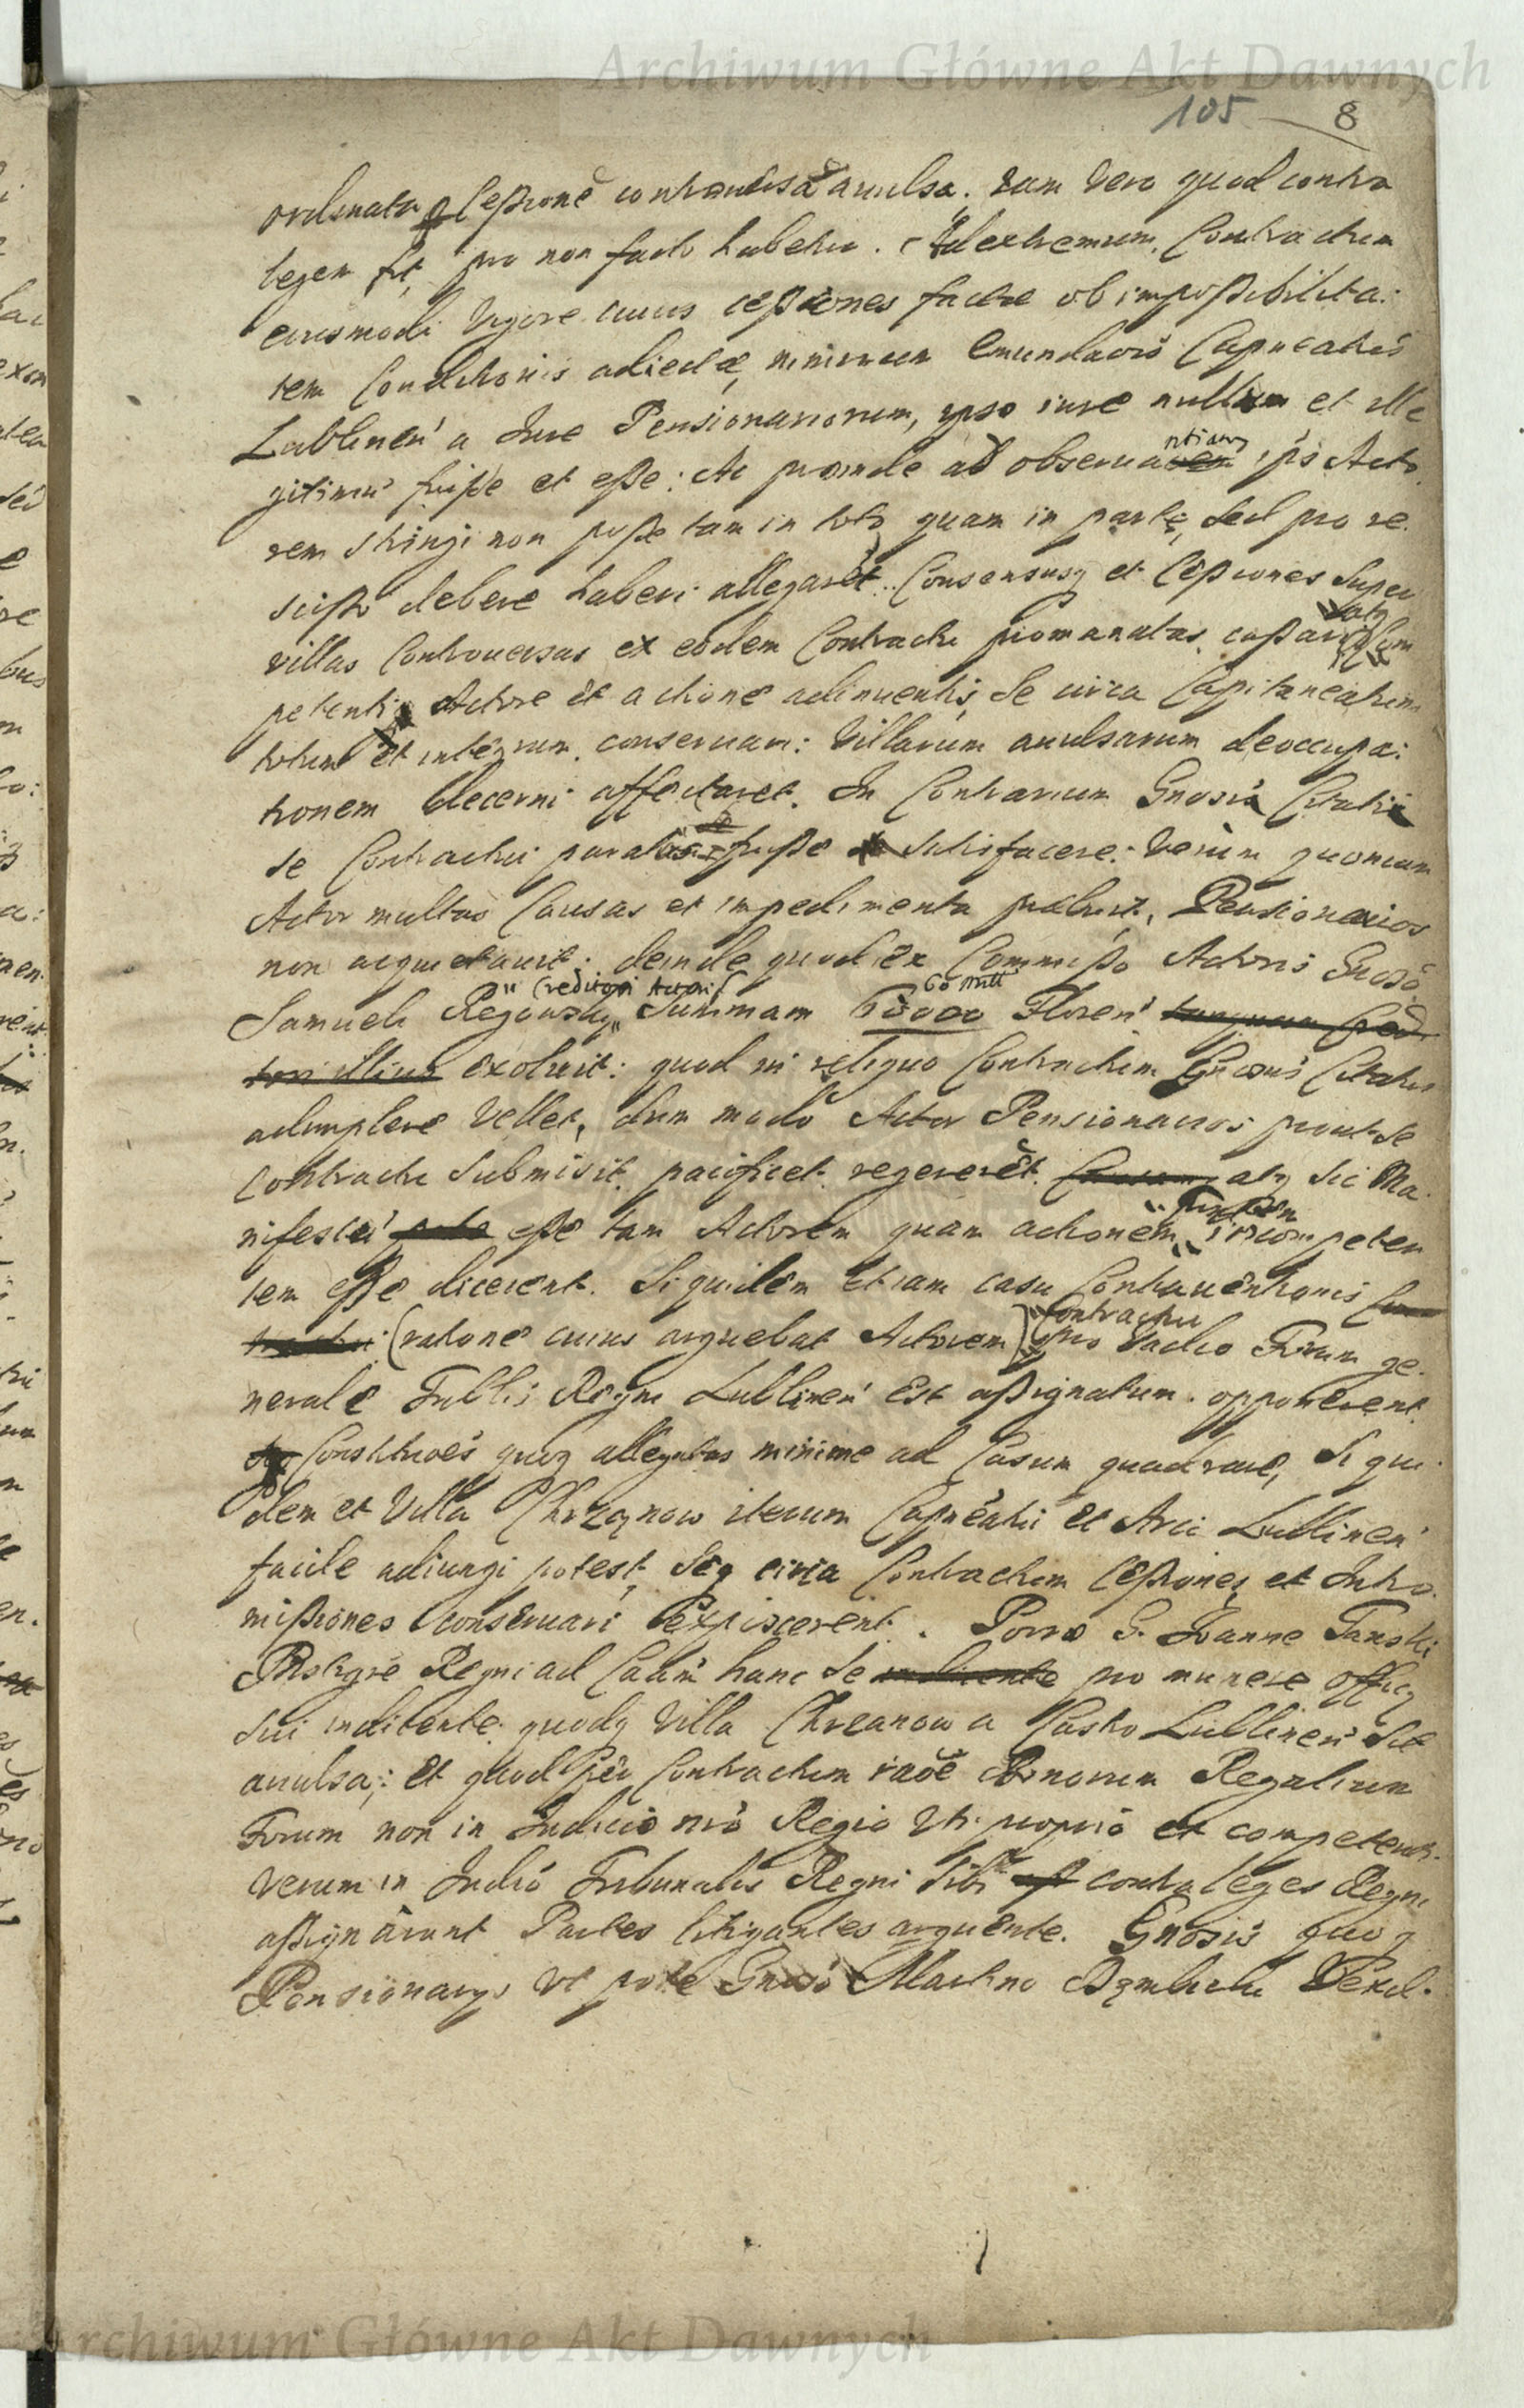 Archiwum Główne Akt Dawnych
105 8
ordinata p Cessione contraversa auulsa. tam vero quod contra
legem fit, pro non facto habetur. Ad extremum, Contractum
eiusmodi vigore cuius cessiones factae ob impossibilita:
tem Conditionis adiectae, nimirum Emundaois Capneatus
Lublinen a Jure Pensionariorum, ipso iure nullum et ille
gitimu fuisse et esse: Ac proinde ad obserua ntiam ips Acto
rem stringi non posse tam in toto, quam in parte, sed pro re
scisso debere haberi allegaret. Consensusq et Cessiones super
villas Controuersas ex eodem Contractu promanatas, cassari atq Com
petenti Actore et actione adinuentis, Se circa Capitaneatum
totum et integrum conseruari: Villarum auulsarum deoccupa:
tionem decerni affectaret. In Contrarium Gnosis Citatis
se Contractui paratos fuisse satisfacere: Verum quoniam
Actor multas Causas et impedimenta praebuit, Pensionarios
non acquietauit: deinde quod ex Commisso Actoris Gnoso
" Creditori Actoris 60 mill
Samueli Regowsky " Summam 60000 Floren tanquam Credi
tori illius exoluit: quod in reliquo Contractum Gnosus Citatus
adimplere vellet, dum modo Actor Pensionarios prout se
Contractu submisit, pacificet regereret. atq sic Ma
nifestu esse tam Actorem quam actionem, incompeten
tem esse dicerent. Siquidem etiam casu Contrauentionis Con
tractui (ratione cuius arguebat Actorem) Contractu Forum ge
nerale Tribllis Regni Lublinen est assignatum opponerent.
Constitnoes quoq allegatas minime ad Casum quadrare, Siqui
dem et Villa Chrzanow iterum Capneatui et Arci Lublinen
facile adiungi potest, Seq circa Contractum Cessiones et Intro
missiones conseruari expiscerent. Porro G. Joanne Tanski
Instigre Regni ad Caam hanc se pro munere officy
sui inditente: quodq Villa Chrzanow a Castro Lublinen sit
auulsa; et quod per Contractum raoe Bonorum Regalium
Forum non in Judicio nro Regio vti proprio et competenti
verum in Judio Tribunalis Regni sibi contra leges Regni
assignarunt Partes litigantes arguente. Gnosis quoq
Pensionarys vt pote Gnoso Martino Dęmbicki Vexil.
Archiwum Główne Akt Dawnych